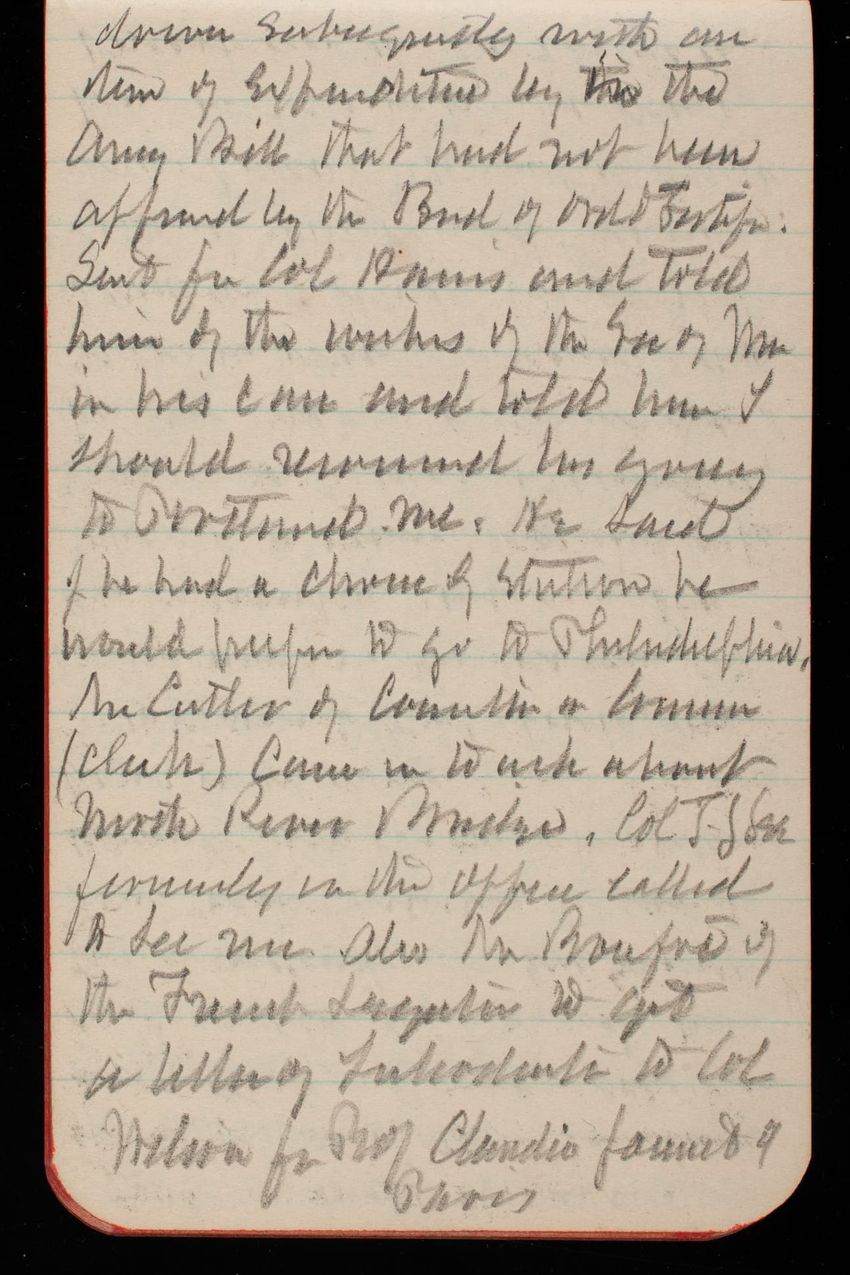 down subsequently with an
item of Expenditure by the
Army Bill that had not been
approved by the Board of Ord & Fortifn.
Sent for Col Hains and told
him of the wishes of the Sec of War
in his case and told him I
should recommend his going
to Portland Me. He said
if he had a choice of Station he
would prefer to go to Philadelphia.
Mr Cutler of Committee on Commerce
(Clerk) Came in to ask about
North River Bridge, Col T. J.
formerly in the office called
to see me also Mr of
the French Legation to get
a letter of Introduction to Col
Wilson for Prof Claudio Jannet of
Paris